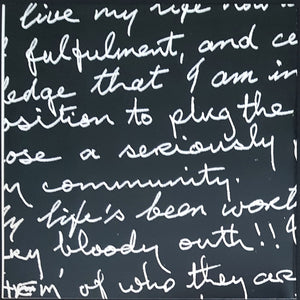 live my life now
fulfulment, and ce
ledge that I am in
osition to plug the
ose a seriously
community.
life's been wort
bloody outh!!
of who they are